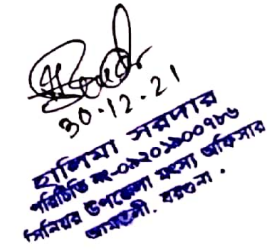 30.12.21
হালিমা সরদার
পরিচিতি নং-০১২০১৯০০৭৮৬
সিনিয়র উপজেলা মৎস্য অফিসার
আমতলী, বরগুনা।